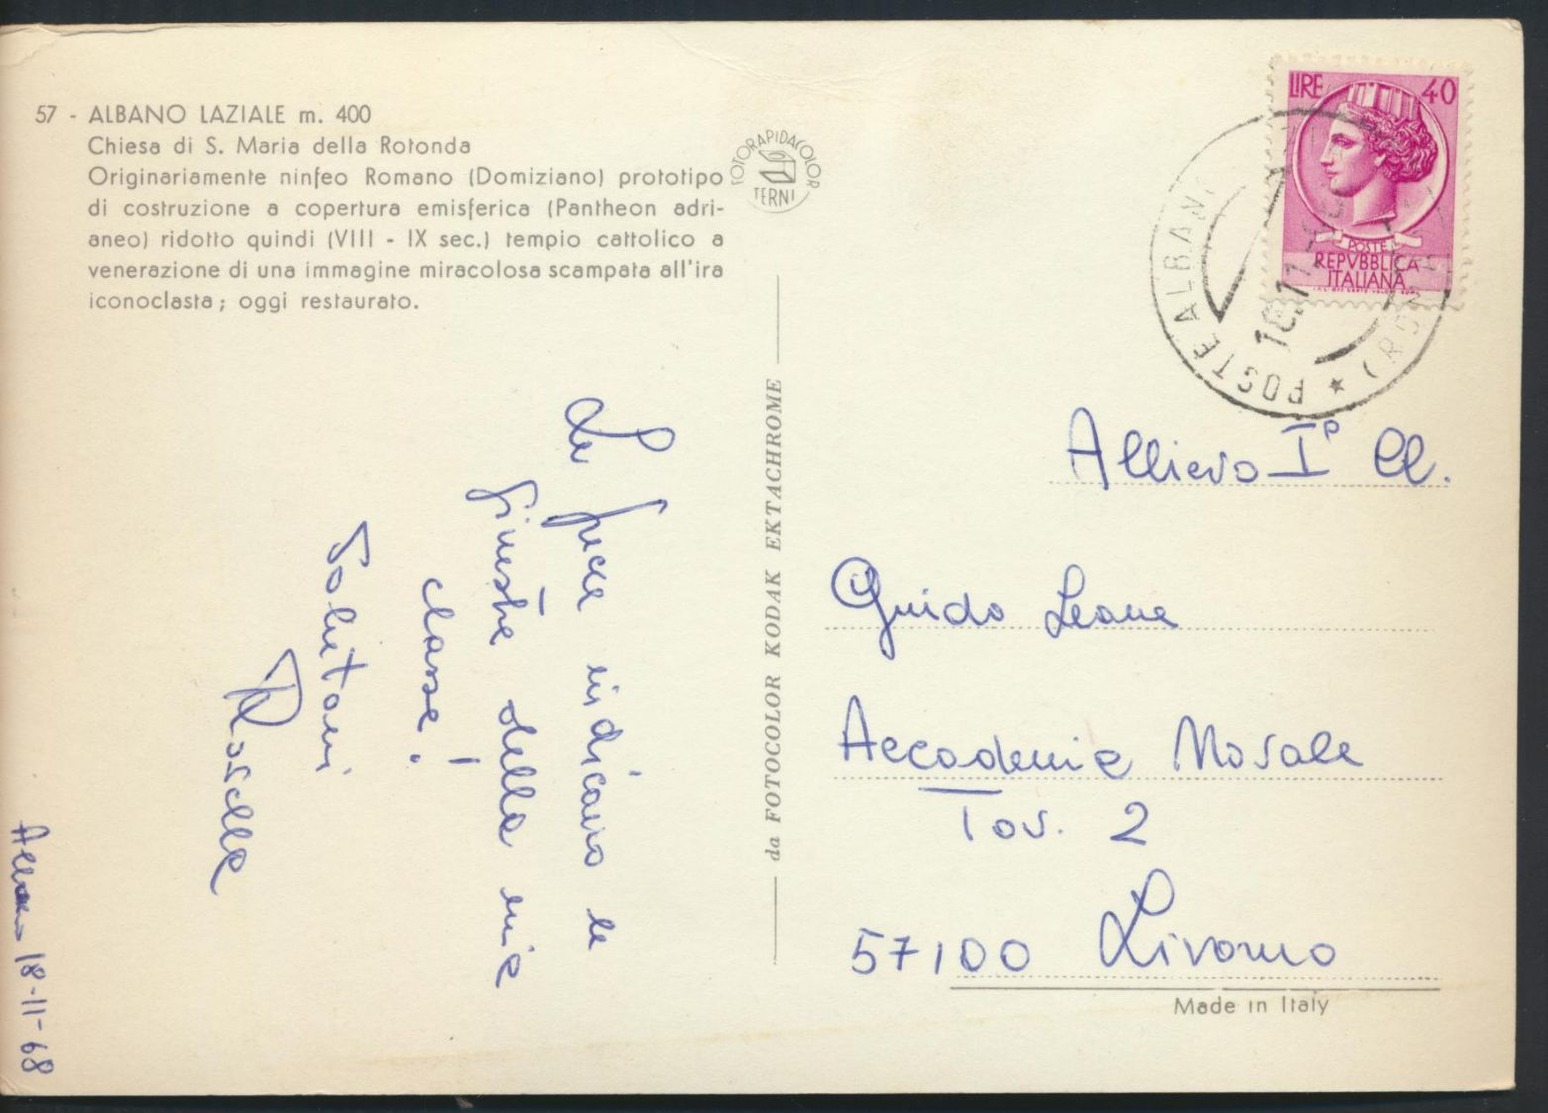 57 - ALBANO LAZIALE m. 400
Chiesa di S. Maria della Rotonda
Originariamente ninfeo Romano (Domiziano) prototipo
di costruzione a copertura emisferica (Pantheon adri-
aneo) ridotto quindi (VIII - IX sec.) tempio cattolico a
venerazione di una immagine miracolosa scampata all'ira
iconoclasta; oggi restaurato.
FOTORAPIDACOLOR
TERNI
La freccia indicano la
finestra della mia
classe!
Salutoni
Rossella
Albano 18-11-68
da FOTOCOLOR KODAK EKTACHROME
LIRE 40
POSTE
REPVBBLICA
ITALIANA
POSTE ALBANO
18.11
(ROMA)
Allievo Iª Cl.
Guido Leone
Accademia Navale
Tav. 2
57100 Livorno
Made in Italy